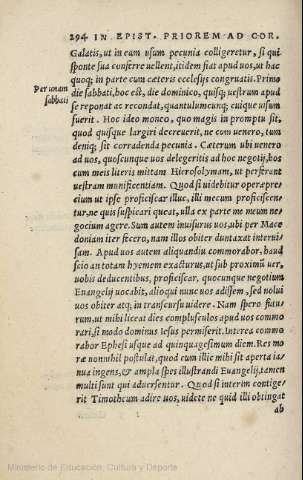 294 IN EPIST. PRIOREM AD COR.
Galatis, ut in eum usum pecunia colligeretur, si qui
sponte sua conferre uellent, itidem fiat apud uos, ut hac
quoq; in parte cum ceteris ecclesijs congruatis. Primo
Per unam
sabbati
die sabbati, hoc est, die dominico, quisq; uestrum apud
se reponat ac recondat, quantulumcunq; cuique uisum
fuerit. Hoc ideo moneo, quo magis in promptu sit,
quod quisque largiri decreuerit, ne cum uenero, tum
deniq; sit corradenda pecunia. Cæterum ubi uenero
ad uos, quoscunque uos delegeritis ad hoc negotij, hos
cum meis literis mittam Hierosolymam, ut perferant
uestram munificentiam. Quod si uidebitur operæpre-
cium ut ipse proficiscar illuc, illi mecum proficiscen-
tur, ne quis suspicari queat, ulla ex parte me meum ne-
gocium agere. Sum autem inuisurus uos, ubi per Mace
doniam iter fecero, nam illos obiter duntaxat interui-
sam. Apud uos autem aliquandiu commorabor, haud
scio an totam hyemem exacturus, ut sub proximũ uer,
uobis deducentibus, proficiscar, quocunque negotium
Euangelij uocabit, alioqui nunc uos adissem, sed nolui
uos obiter atq; in transcursu uidere. Nam spero futu-
rum, ut mihi liceat dies complusculos apud uos commo
rari, si modo dominus Iesus permiserit. Interea commo
rabor Ephesi usque ad quinquagesimum diem. Res mo
ræ nonnihil postulat, quod cum illic mihi sit aperta ia-
nua ingens, & ampla spes illustrandi Euangelij, tamen
multi sunt qui aduersentur. Quod si interim contige-
rit Timotheum adire uos, uidete ne quid illi obtingat
ab
Ministerio de Educación, Cultura y Deporte